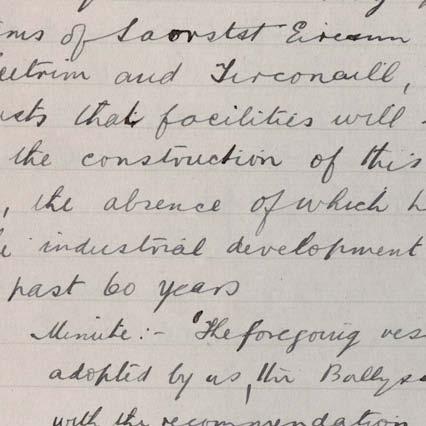 of Saorstst Eireann
and Tirconaill,
that facilities will
the construction of this
, the absence of which
industrial development
past 60 years
Minute:- "The foregoing res
adopted by us, the Ballys
with the recommendation